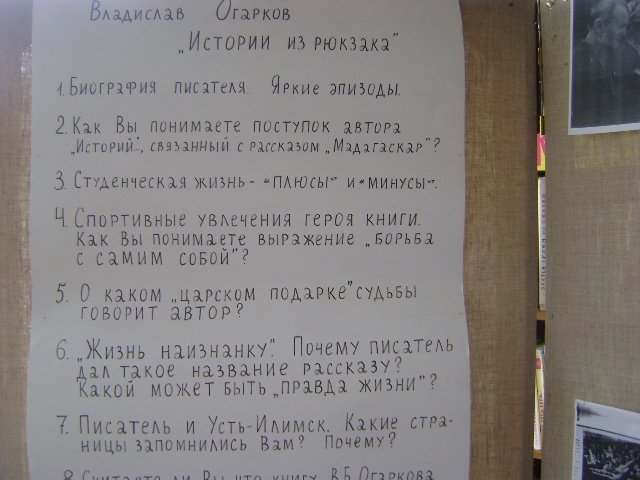 Владислав Огарков
„Истории из рюкзака"
1. Биография писателя. Яркие эпизоды.
2. Как Вы понимаете поступок автора
„Историй...", связанный с рассказом „Мадагаскар"?
3. Студенческая жизнь - «плюсы» и «минусы».
4. Спортивные увлечения героя книги.
Как Вы понимаете выражение „борьба
с самим собой"?
5. О каком „царском подарке" судьбы
говорит автор?
6. „Жизнь наизнанку". Почему писатель
дал такое название рассказу?
Какой может быть „правда жизни"?
7. Писатель и Усть-Илимск. Какие стра-
ницы запомнились Вам? Почему?
8. Считаете ли Вы, что книгу В.Б. Огаркова